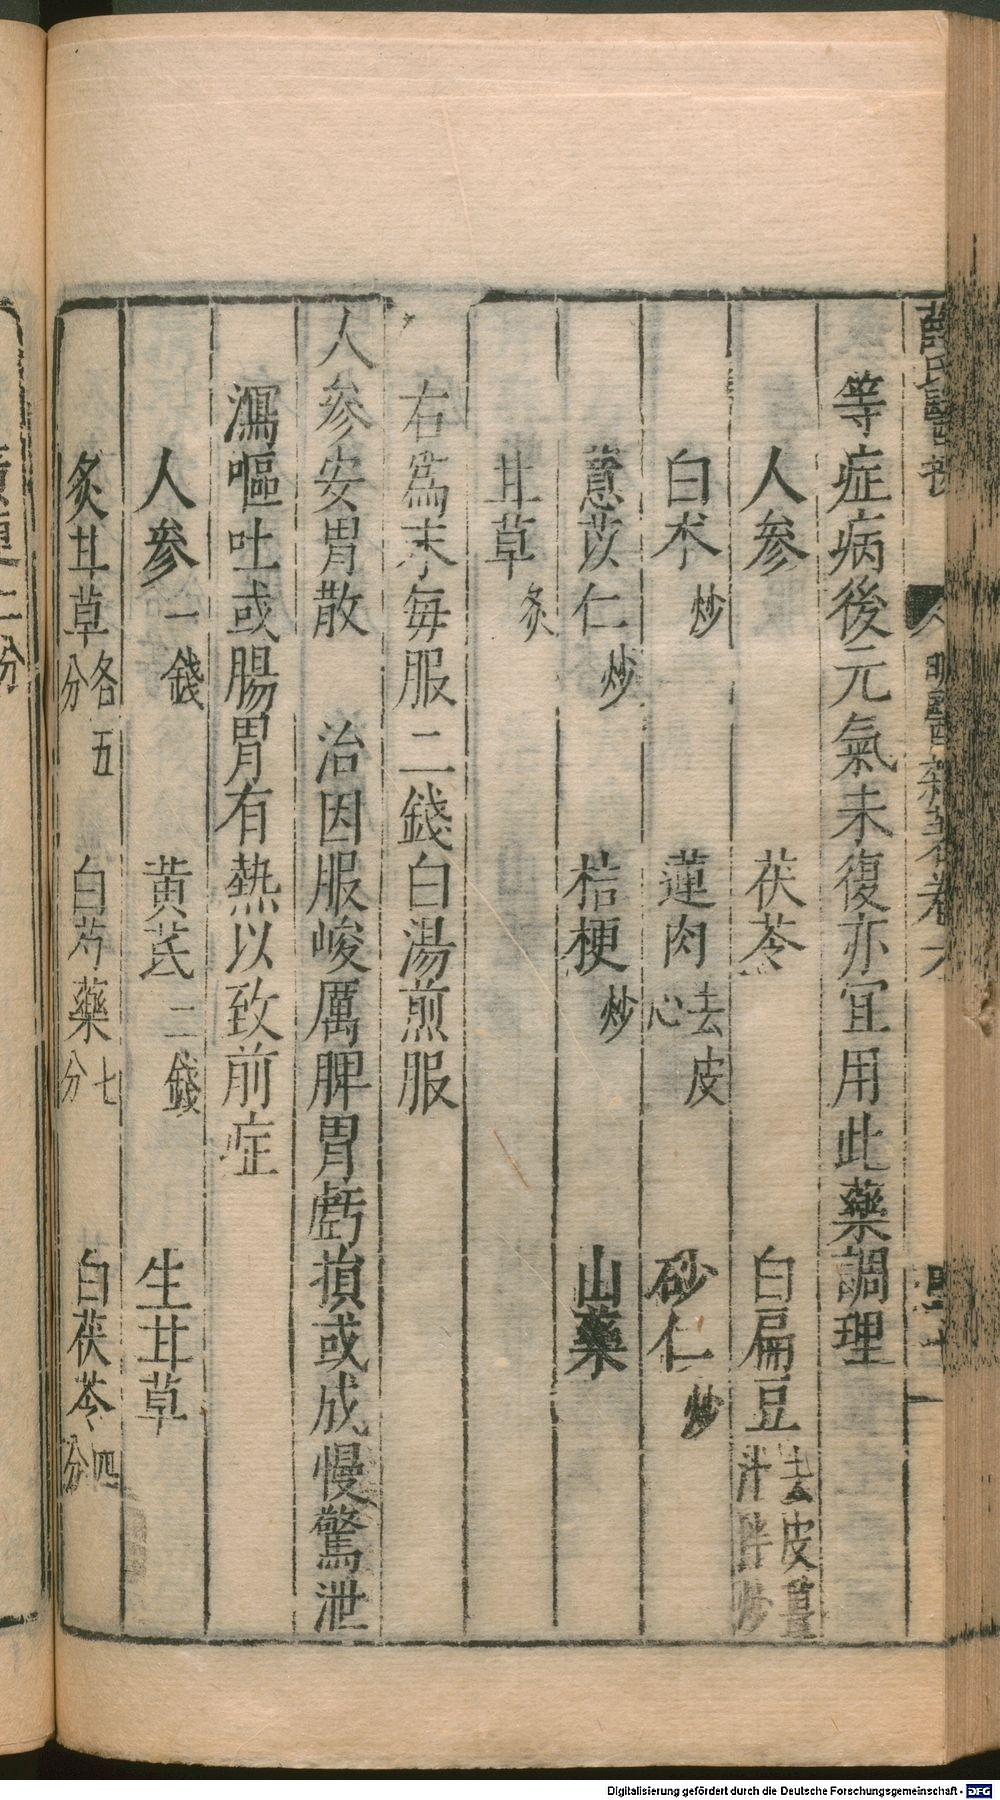 等症病後元氣未復亦宜用此藥調理
人參 茯苓 白扁豆去皮薑汁拌炒
白朮炒 蓮肉去皮心 砂仁炒
薏苡仁炒 桔梗炒 山藥
甘草炙
右為末每服二錢白湯煎服
人參安胃散 治因服峻厲脾胃虧損或成慢驚泄
瀉嘔吐或腸胃有熱以致前症
人參一錢 黃芪二錢 生甘草
炙甘草各五分 白芍藥七分 白茯苓四分
Digitalisierung gefördert durch die Deutsche Forschungsgemeinschaft - DFG